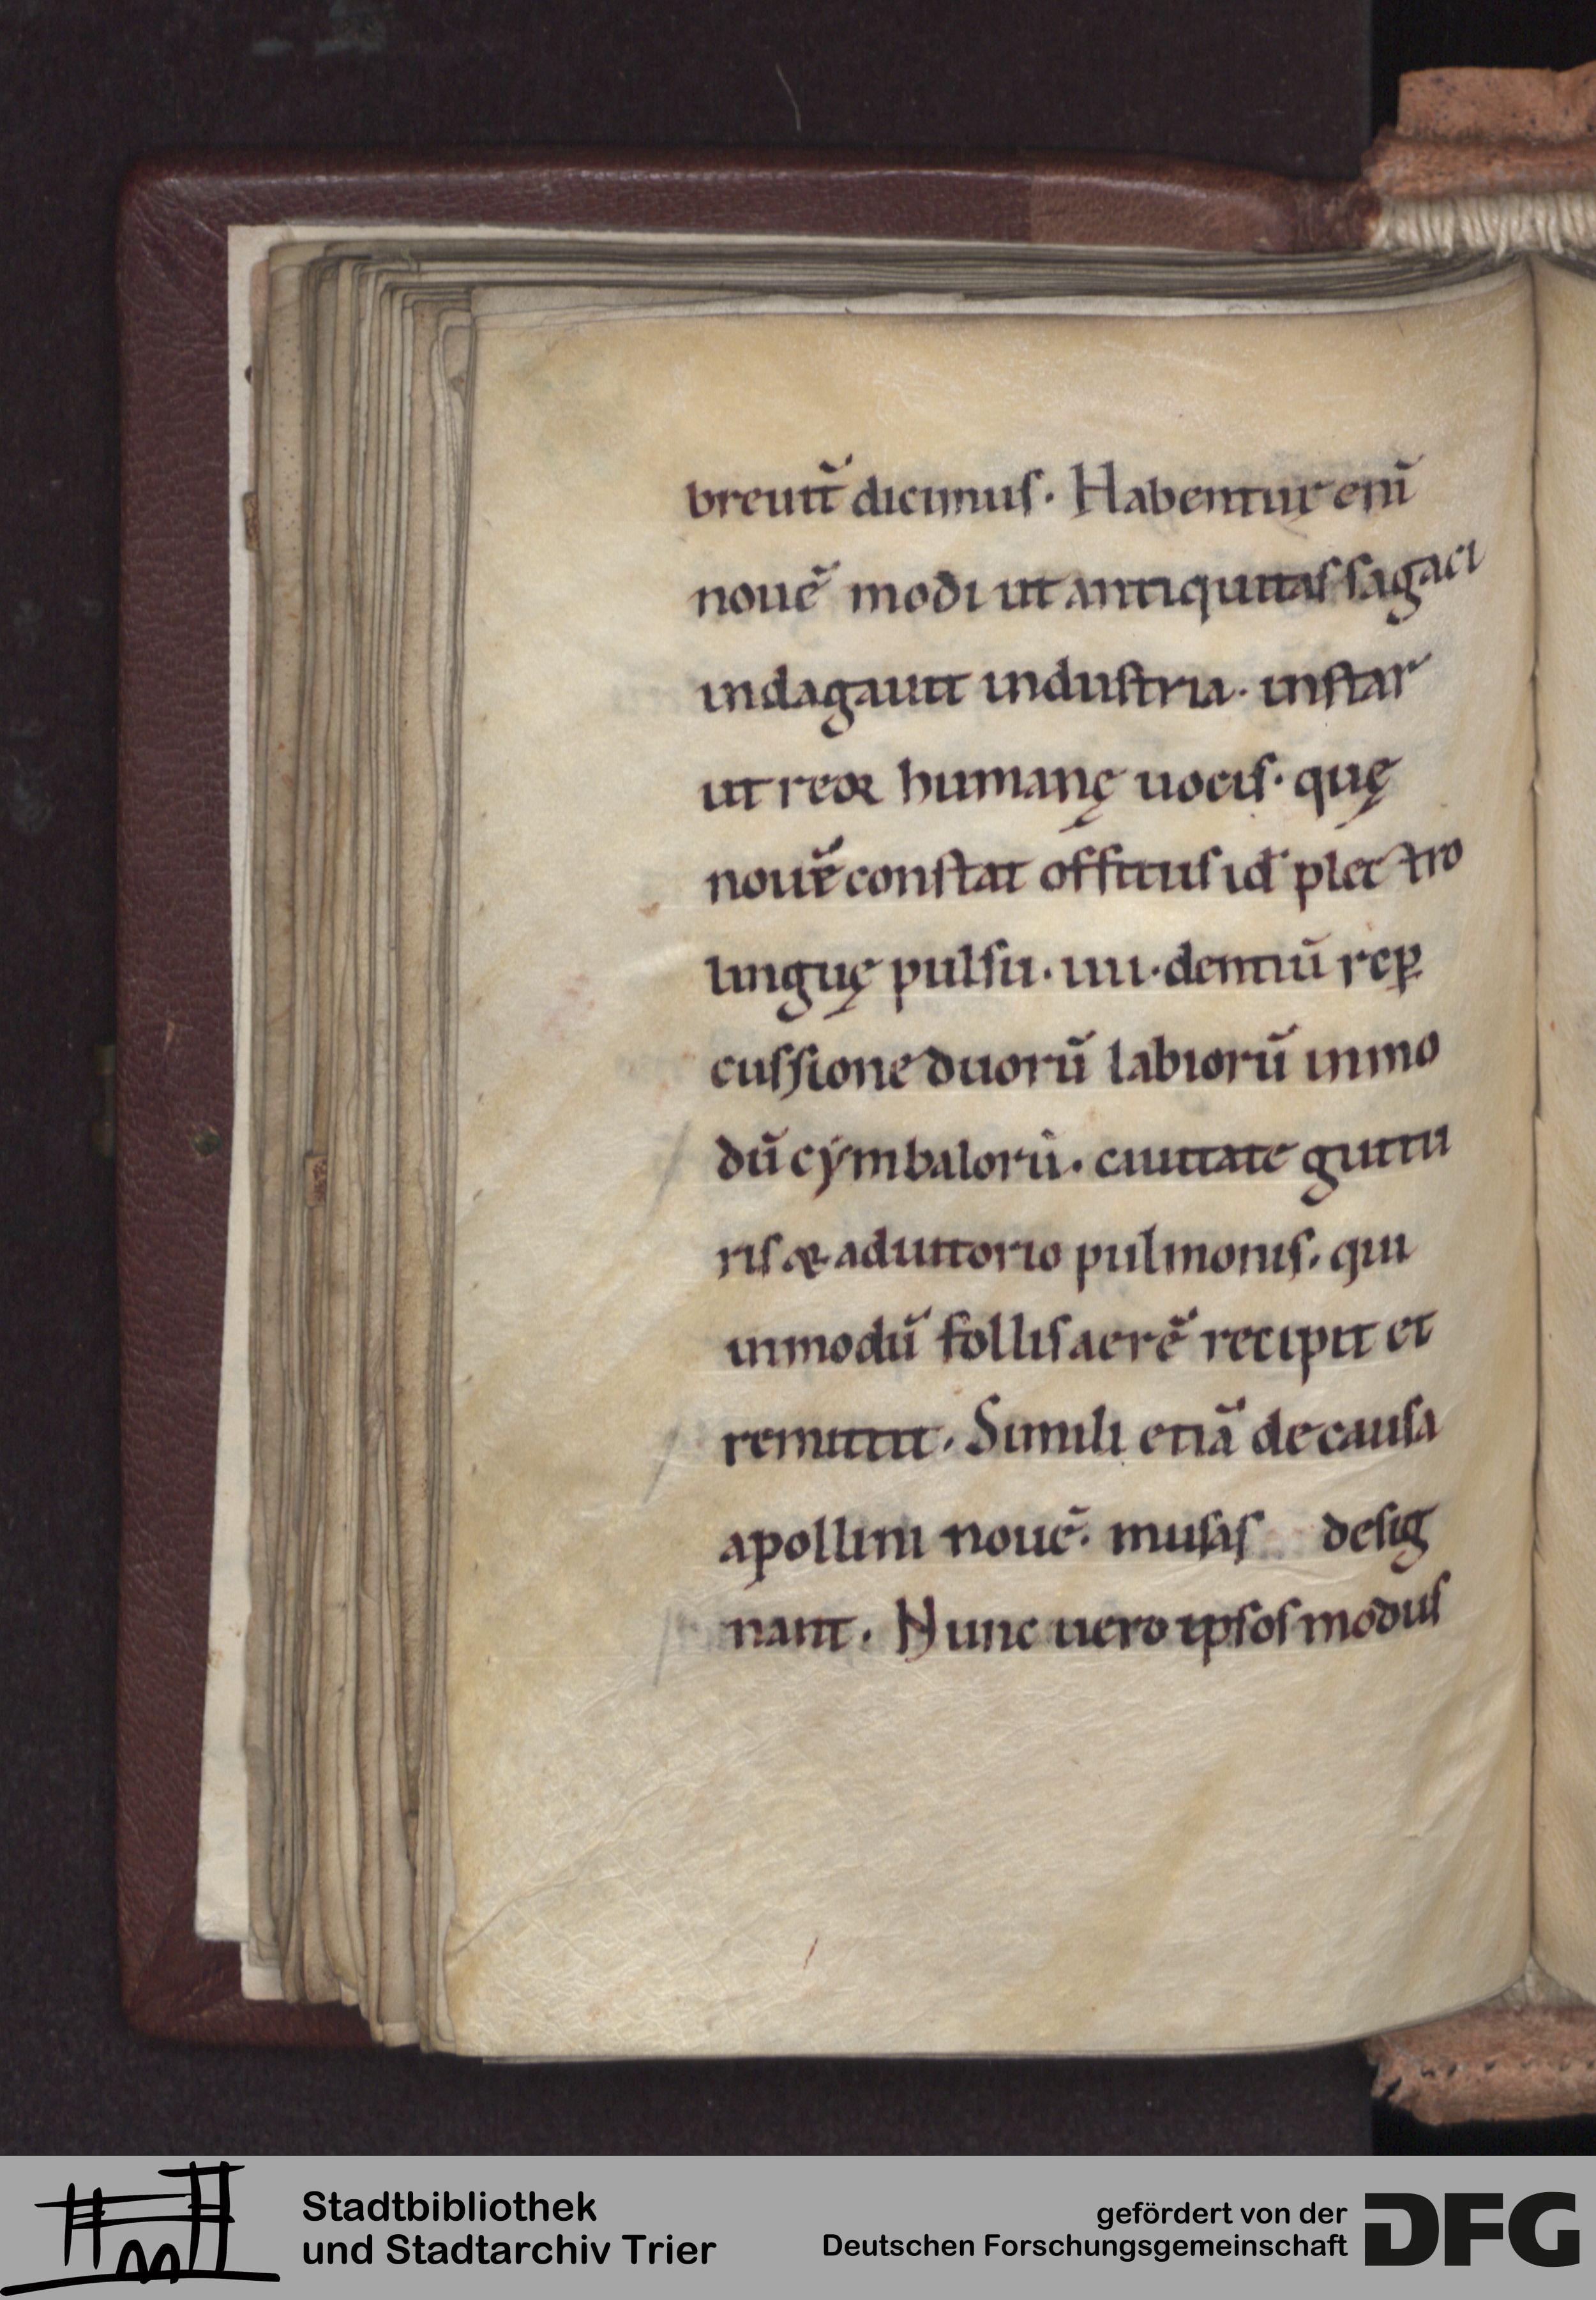 breuit̄ dicimus. Habentur enī
nouē modi ut antiquitas sagaci
indagauit industria. instar
ut reor humanę uocis. quę
nouē constat offitiis id̄ plectro
linguę pulsu. iiii. dentiū rep̱
cussione duorū labiorū inmo
dū cymbalorū. cauitate guttu
ris & adiutorio pulmonis. qui
inmodū follis aerē recipit et
remittit. Simili etiā de causa
apollini nouē. musas desig
nant. Nunc uero ipsos modus
Stadtbibliothek
und Stadtarchiv Trier
gefördert von der
Deutschen Forschungsgemeinschaft
DFG